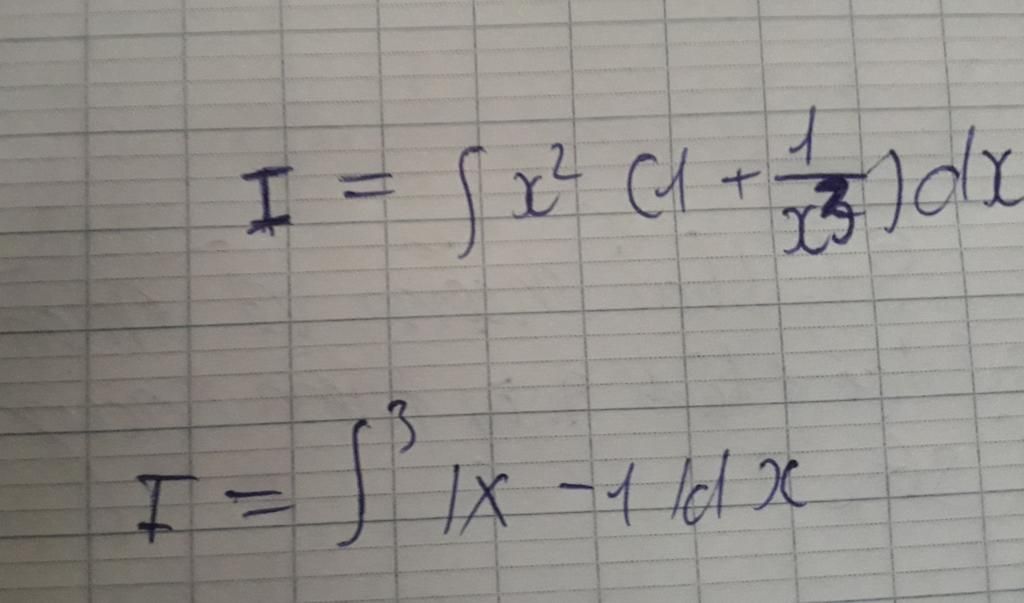 I = ∫ x² (1 + 1/x³) dx
I = ∫³ |x - 1| dx